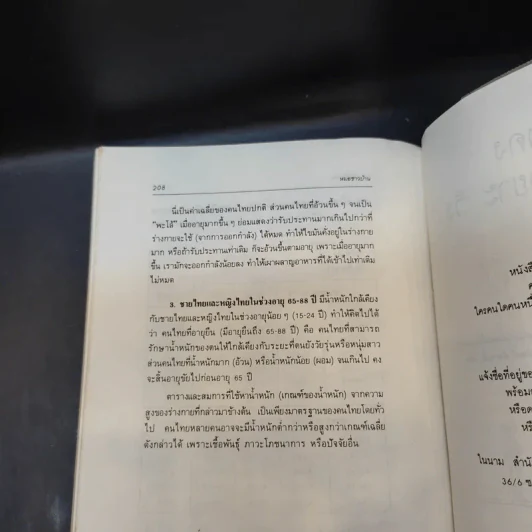 208
หมอชาวบ้าน
นี่เป็นค่าเฉลี่ยของคนไทยปกติ ส่วนคนไทยที่อ้วนขึ้น ๆ จนเป็น
"พะโล้" เมื่ออายุมากขึ้น ๆ ย่อมแสดงว่ารับประทานมากเกินไปกว่าที่
ร่างกายจะใช้ (จากการออกกำลัง) ได้หมด ทำให้ไขมันคั่งอยู่ในร่างกาย
มาก หรือถ้ารับประทานเท่าเดิม ก็จะอ้วนขึ้นตามอายุ เพราะเมื่ออายุมาก
ขึ้น เรามักจะออกกำลังน้อยลง ทำให้เผาผลาญอาหารที่ได้เข้าไปเท่าเดิม
ไม่หมด
3. ชายไทยและหญิงไทยในช่วงอายุ 65-88 ปี มีน้ำหนักใกล้เคียง
กับชายไทยและหญิงไทยในช่วงอายุน้อย ๆ (15-24 ปี) ทำให้คิดไปได้
ว่า คนไทยที่อายุยืน (มีอายุยืนถึง 65-88 ปี) คือ คนไทยที่สามารถ
รักษาน้ำหนักของตนให้ใกล้เคียงกับระยะที่ตนยังวัยรุ่นหรือหนุ่มสาว
ส่วนคนไทยที่น้ำหนักมาก (อ้วน) หรือน้ำหนักน้อย (ผอม) จนเกินไป คง
จะสิ้นอายุขัยไปก่อนอายุ 65 ปี
ตารางและสมการที่ใช้หาน้ำหนัก (เกณฑ์ของน้ำหนัก) จากความ
สูงของร่างกายที่กล่าวมาข้างต้น เป็นเพียงมาตรฐานของคนไทยโดยทั่ว
ไป คนไทยหลายคนอาจจะมีน้ำหนักต่ำกว่าหรือสูงกว่าเกณฑ์เฉลี่ย
ดังกล่าวได้ เพราะเชื้อพันธุ์ ภาวะโภชนาการ หรือปัจจัยอื่น
หนังสื
ใครคนใดคนหนึ่
แจ้งชื่อที่อยู่ขอ
พร้อม
หรือ
ในนาม สำนั
36/6 ซ